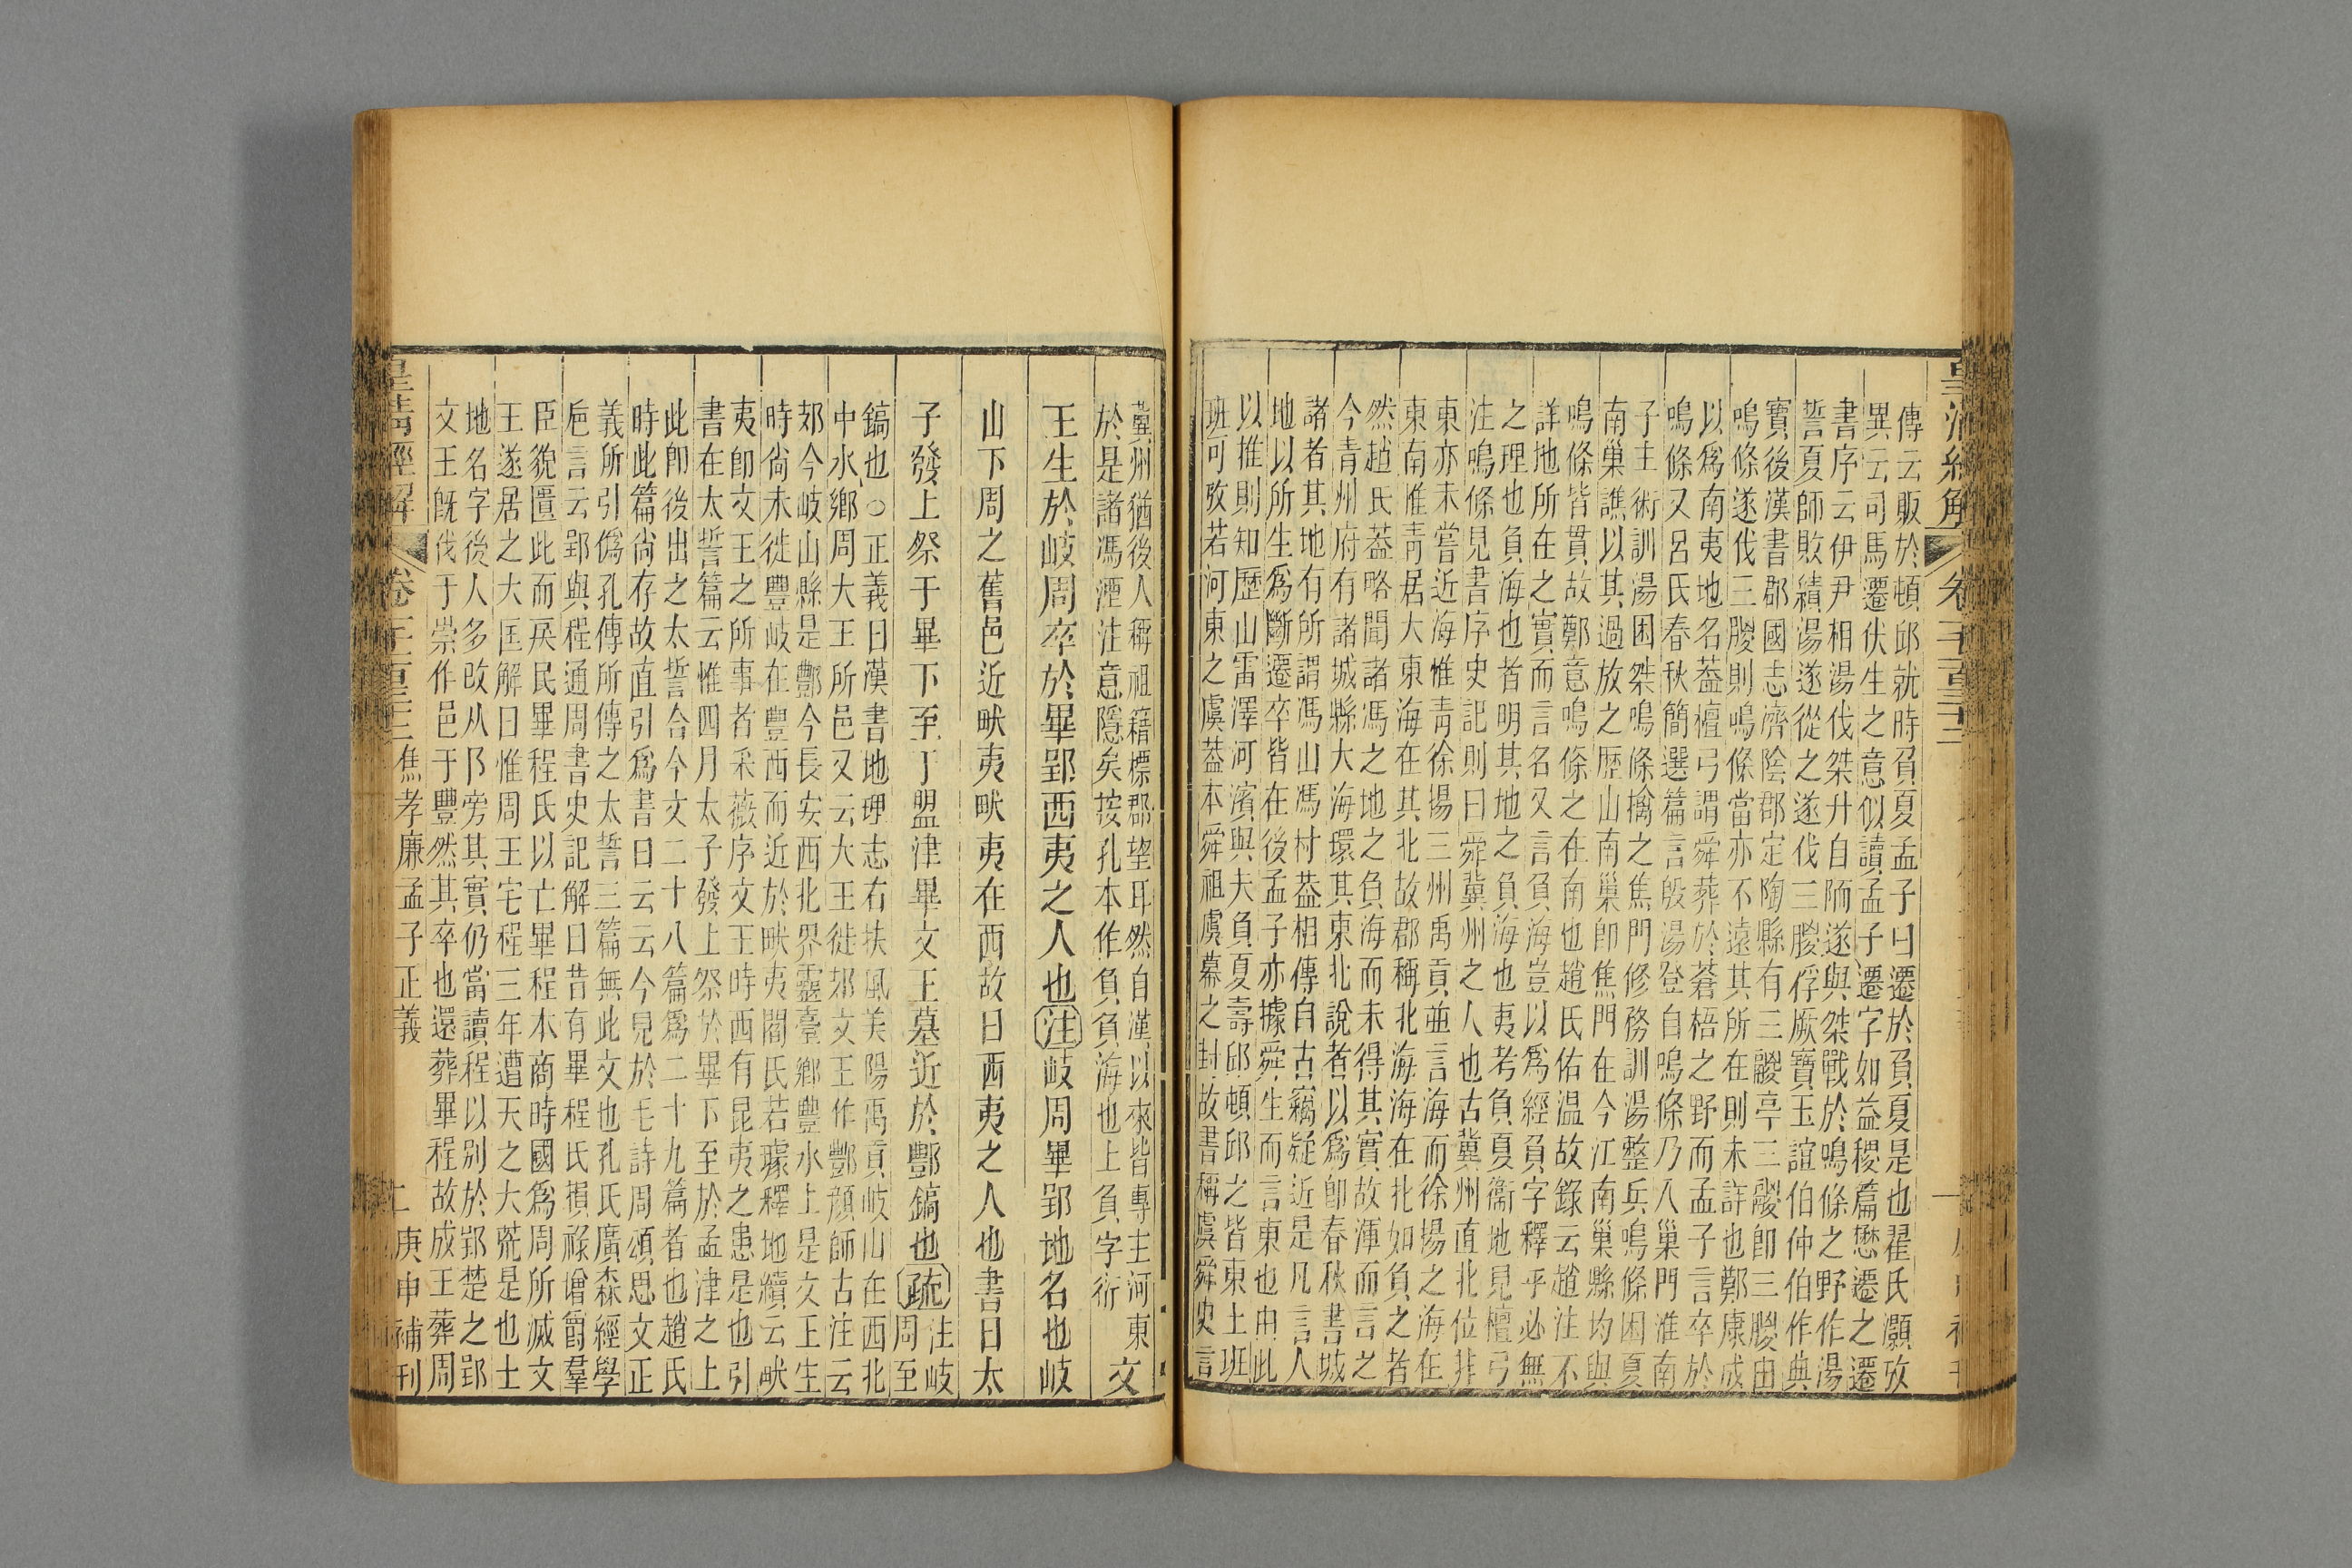 傳云販於頓邱就時負夏孟子曰遷於負夏是也翟氏灝攷
異云司馬遷伏生之意似讀孟子遷字如益稷篇懋遷之遷
書序云伊尹相湯伐桀升自陑遂與桀戰於鳴條之野作湯
誓夏師敗績湯遂從之遂伐三朡俘厥寶玉誼伯仲伯作典
寶後漢書郡國志濟陰郡定陶縣有三鬷亭三鬷即三朡由
鳴條遂伐三朡則鳴條當亦不遠其所在則未詳也鄭康成
以爲南夷地名葢檀弓謂舜葬於蒼梧之野而孟子言卒於
鳴條又呂氏春秋簡選篇言殷湯登自鳴條乃入巢門淮南
子主術訓湯困桀鳴條擒之焦門修務訓湯整兵鳴條困夏
南巢譙以其過放之歷山南巢即焦門在今江南巢縣均與
鳴條皆貫故鄭意鳴條之在南也趙氏佑温故錄云趙注不
詳地所在之實而言名又言負海豈以爲經負字釋乎必無
之理也負海也者明其地之負海也夷考負夏衞地見檀弓
注鳴條見書序史記則曰舜冀州之人也古冀州直北位非
東亦未嘗近海惟靑徐揚三州禹貢並言海而徐揚之海在
東南惟靑居大東海在其北故郡稱北海海在北如負之者
然趙氏葢略聞諸馮之地之負海而未得其實故渾而言之
今青州府有諸城縣大海環其東北說者以爲卽春秋書城
諸者其地有所謂馮山馮村葢相傳自古竊疑近是凡言人
地以所生爲斷遷卒皆在後孟子亦據舜生而言東也由此
以推則知歷山雷澤河濱與夫負夏壽邱頓邱之皆東土班
班可攷若河東之虞葢本舜祖虞幕之封故書稱虞舜史言
冀州猶後人稱祖籍標郡望耳然自漢以來皆專主河東
於是諸馮湮注意隱矣按孔本作負負海也上負字衍
文
王生於岐周卒於畢郢西夷之人也注岐周畢郢地名也岐
山下周之舊邑近畎夷畎夷在西故曰西夷之人也書曰太
子發上祭于畢下至于盟津畢文王墓近於酆鎬也疏注岐
周至
鎬也○正義曰漢書地理志右扶風美陽禹貢岐山在西北
中水鄉周大王所邑又云大王徙郊文王作酆顔師古注云
郊今岐山縣是酆今長安西北界靈臺鄉豐水上是文王生
時尙未徙豐岐在豐西而近於畎夷閻氏若璩釋地續云畎
夷卽文王之所事者采薇序文王時西有昆夷之患是也引
書在太誓篇云惟四月太子發上祭於畢下至於孟津之上
此卽後出之太誓合今文二十八篇爲二十九篇者也趙氏
時此篇尙存故直引爲書曰云云今見於毛詩周頌思文正
義所引僞孔傳所傳之太誓三篇無此文也孔氏廣森經學
巵言云郢與程通周書史記解曰昔有畢程氏損祿增爵羣
臣貌匱此而戾民畢程氏以亡畢程本商時國爲周所滅文
王遂居之大匡解曰惟周王宅程三年遭天之大荒是也士
地名字後人多改从阝旁其實仍當讀程以别於郢楚之郢
文王旣伐于崇作邑于豐然其卒也還葬畢程故成王葬周
皇清經解 卷一千一百二十三 焦孝廉孟子正義 二 庚申補刊